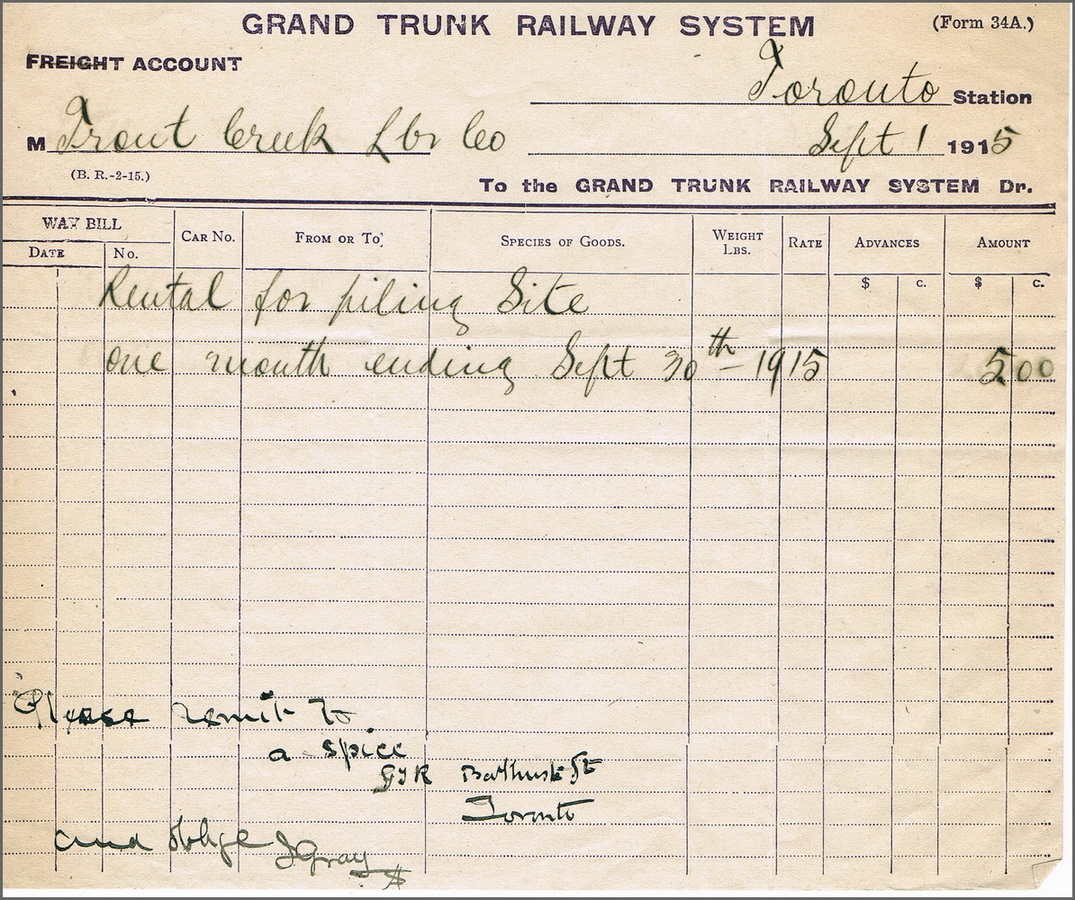 GRAND TRUNK RAILWAY SYSTEM (Form 34A.)
FREIGHT ACCOUNT
Toronto Station
M Trout Creek Lbr Co Sept 1 1915
(B. R.-2-15.)
To the GRAND TRUNK RAILWAY SYSTEM Dr.
WAY BILL
DATE No. CAR No. FROM OR TO SPECIES OF GOODS. WEIGHT LBS. RATE ADVANCES AMOUNT
$ c. $ c.
Rental for piling Site
one month ending Sept 30th - 1915 5 00
Please remit to
a spice
GTR Bathurst St
Toronto
and oblige JGray